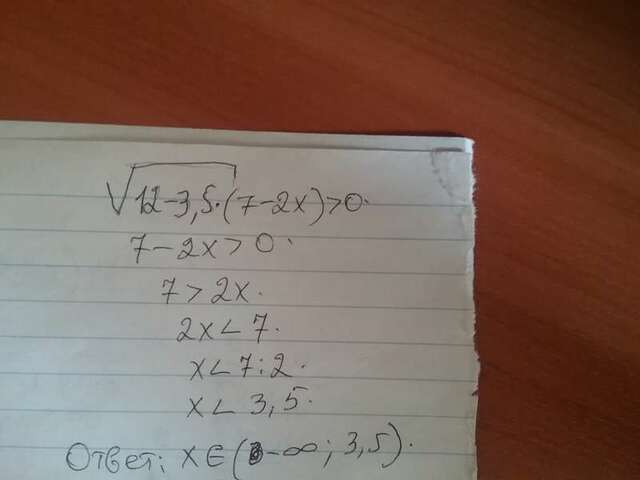 √12-3,5·(7-2x)>0.
7-2x>0.
7>2x.
2x<7.
x<7:2.
x<3,5.
Ответ: x∈(-∞; 3,5).